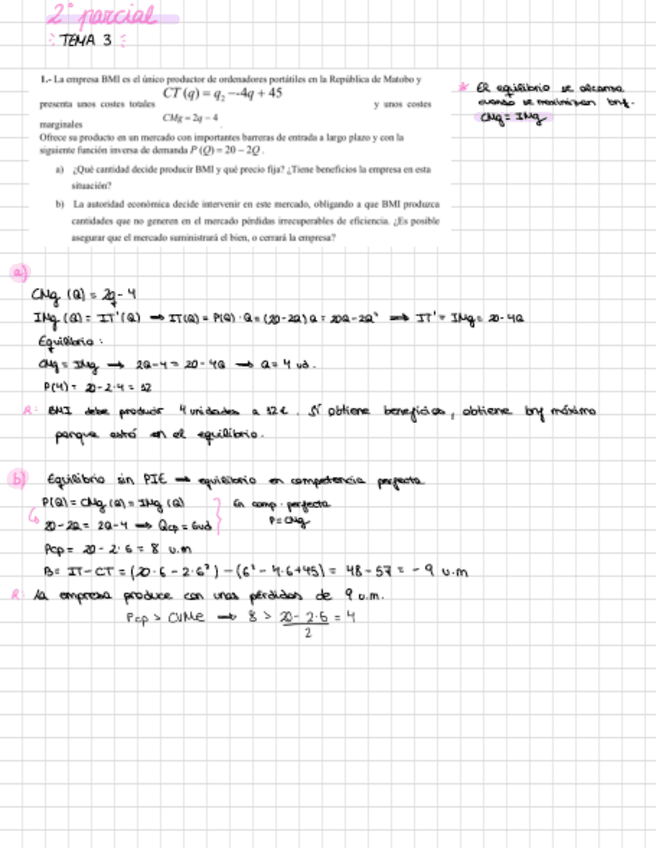 2º parcial
TEMA 3
1.- La empresa BMI es el único productor de ordenadores portátiles en la República de Matobo y
presenta unos costes totales CT(q) = q₂ -–4q + 45 y unos costes
marginales CMg = 2q – 4
Ofrece su producto en un mercado con importantes barreras de entrada a largo plazo y con la
siguiente función inversa de demanda P(Q) = 20 – 2Q.
a) ¿Qué cantidad decide producir BMI y qué precio fija? ¿Tiene beneficios la empresa en esta
situación?
b) La autoridad económica decide intervenir en este mercado, obligando a que BMI produzca
cantidades que no generen en el mercado pérdidas irrecuperables de eficiencia. ¿Es posible
asegurar que el mercado suministrará el bien, o cerrará la empresa?
* El equilibrio se alcanza
cuando se maximizan bnf.
CMg = IMg
a)
CMg (Q) = 2q - 4
IMg (Q) = IT'(Q) → IT(Q) = P(Q) · Q = (20-2Q)Q = 20Q-2Q² → IT' = IMg = 20-4Q
Equilibrio:
CMg = IMg → 2Q-4 = 20-4Q → Q = 4 ud.
P(4) = 20-2·4 = 12
R: BMI debe producir 4 unidades a 12€. Sí obtiene beneficios, obtiene bnf máximo
porque está en el equilibrio.
b) Equilibrio sin PIE → equilibrio en competencia perfecta
P(Q) = CMg (Q) = IMg (Q) En comp. perfecta
20-2Q = 2Q-4 → Qcp = 6ud P = CMg
Pcp = 20-2·6 = 8 u.m
B = IT-CT = (20·6-2·6²)-(6²-4·6+45) = 48-57 = -9 u.m
R: La empresa produce con unas pérdidas de 9 u.m.
Pcp > CVMe → 8 > 20-2·6 = 4
2